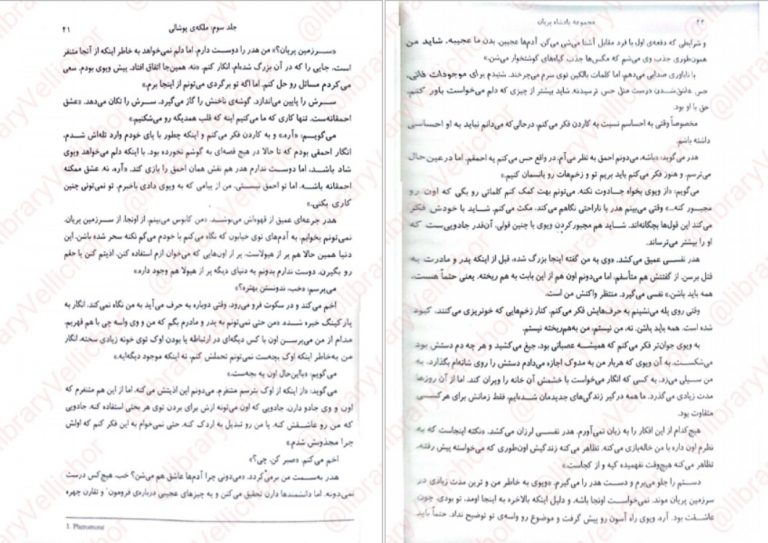 جلد سوم: ملکه‌ی پوشالی ۴۱
«سرزمین پریان؟» من هدر را دوست دارم، اما دلم نمی‌خواهد به خاطر اینکه از آنجا متنفر
است، جایی را که در آن بزرگ شده‌ام، انکار کنم. «نه، همین‌جا اتفاق افتاد. پیش ویوی بودم. سعی
می‌کردم مسائل رو حل کنم. اما اگه تو برگردی می‌تونم از اینجا برم.»
سرش را پایین می‌اندازد. گوشه‌ی ناخنش را گاز می‌گیرد. سرش را تکان می‌دهد. «عشق
احمقانه‌ست. تنها کاری که ما می‌کنیم اینه که قلب همدیگه رو می‌شکنیم.»
می‌گویم: «آره.» و به کاردن فکر می‌کنم و اینکه چطور با پای خودم وارد تله‌اش شدم،
انگار احمقی بودم که تا حالا در هیچ قصه‌ای به گوشم نخورده بود. با اینکه دلم می‌خواهد ویوی
شاد باشد، اما دوست ندارم هدر هم نقش همان احمق را بازی کند. «آره، نه. عشق ممکنه
احمقانه باشه. اما تو احمق نیستی. من از پیامی که به ویوی دادی باخبرم. تو نمی‌تونی چنین
کاری بکنی.»
هدر جرعه‌ای عمیق از قهوه‌اش می‌نوشد. «من کابوس می‌بینم. از اونجا. از سرزمین پریان.
نمی‌تونم بخوابم. به آدم‌های توی خیابون که نگاه می‌کنم با خودم می‌گم نکنه سحر شده باشن. این
دنیا همین حالا هم پر از هیولاست. پر از اون‌هایی که می‌خوان ازم استفاده کنن، اذیتم کنن یا حقم
رو بگیرن. دوست ندارم بدونم یه دنیای دیگه پر از هیولا هم وجود داره.»
می‌پرسم: «خب، ندونستن بهتره؟»
اخم می‌کند و در سکوت فرو می‌رود. وقتی دوباره به حرف می‌آید به من نگاه نمی‌کند. انگار به
پارکینگ خیره شده. «من حتی نمی‌تونم به پدر و مادرم بگم که من و وی واسه چی با هم قهریم.
مدام از من می‌پرسن اون با کس دیگه‌ای در ارتباطه یا بودن اوک توی خونه زیادی سخته. انگار
من به‌خاطر اینکه اوک بچه‌ست نمی‌تونم تحملش کنم، نه اینکه موجود دیگه‌ایه.»
می‌گویم: «بااین‌حال اون یه بچه‌ست.»
می‌گوید: «از اینکه از اوک بترسم متنفرم. می‌دونم این اذیتش می‌کنه. اما از این هم متنفرم که
اون و وی جادو دارن. جادویی که اون می‌تونه ازش برای بردن توی هر بحثی استفاده کنه. جادویی
که من رو عاشقش کنه. یا من رو تبدیل به اردک کنه. حتی نمی‌خوام به این فکر کنم که اولش
چرا مجذوبش شدم.»
اخم می‌کنم. «صبر کن. چی؟»
هدر به‌سمت من برمی‌گردد. «می‌دونی چرا آدم‌ها عاشق هم می‌شن؟ خب، هیچ‌کس درست
نمی‌دونه. اما دانشمندها دارن تحقیق می‌کنن و یه چیزهای عجیبی درباره‌ی فرومون¹ و تقارن چهره
1. Pheromone
مجموعه پادشاه پریان
و شرایطی که دفعه‌ی اول با فرد مقابل آشنا می‌شی می‌گن. آدم‌ها عجیبن. بدن ما عجیبه. شاید من
همون‌طوری جذب وی می‌شم که مگس‌ها جذب گیاه‌های گوشتخوار می‌شن.»
با ناباوری صدایی می‌دهم، اما کلمات بالکین توی سرم می‌چرخند. شنیدم برای موجودات فانی،
حس عاشق‌شدن درست مثل حس ترسیدنه. شاید بیشتر از چیزی که دلم می‌خواست باور کنم،
حق با او بود.
مخصوصاً وقتی به احساسم نسبت به کاردن فکر می‌کنم، درحالی‌که می‌دانم نباید به او احساسی
داشته باشم.
هدر می‌گوید: «باشه، می‌دونم احمق به نظر می‌آم. در واقع حس می‌کنم یه احمقم. اما در عین حال
می‌ترسم. و هنوز فکر می‌کنم باید بریم تو و زخم‌هات رو پانسمان کنیم.»
می‌گویم: «از ویوی بخواه جادوت نکنه. می‌تونم بهت کمک کنم کلماتی رو بگی که اون رو
مجبور کنه...» وقتی می‌بینم هدر با ناراحتی نگاهم می‌کند، مکث می‌کنم. شاید با خودش فکر
می‌کند این قول‌ها بچگانه‌اند. شاید هم مجبور کردن ویوی با چنین قولی، آن‌قدر جادویی‌ست که
او را بیشتر می‌ترساند.
هدر نفسی عمیق می‌کشد. «وی به من گفته اینجا بزرگ شده، قبل از اینکه پدر و مادرت به
قتل برسن. از گفتنش هم متأسفم، اما می‌دونم اون هم از این بابت به هم ریخته. یعنی حتماً هست،
همه باید باشن.» نفسی می‌گیرد. منتظر واکنش من است.
وقتی روی پله می‌نشینم به حرف‌هایش فکر می‌کنم. کنار زخم‌هایی که خونریزی می‌کنند. کبود
شده است. همه باید باشن. نه، من نیستم. من به‌هم‌ریخته نیستم.
به ویوی جوان‌تر فکر می‌کنم که همیشه عصبانی بود. جیغ می‌کشید و هر چه دم دستش بود
می‌شکست. به آن ویوی که هربار من به مدوک اجازه می‌دادم دستش را روی شانه‌ام بگذارد، به
من سیلی می‌زد. به کسی که انگار می‌خواست با خشمش آن خانه را ویران کند. اما از آن روزها
مدت زیادی می‌گذرد. ما همه درگیر زندگی‌های جدیدمان شده‌ایم، فقط زمانش برای هرکسی
متفاوت بود.
هیچ‌کدام از این افکار را به زبان نمی‌آورم. هدر نفسی لرزان می‌کشد. «نکته اینجاست که به
نظرم اون داره با من خاله‌بازی می‌کنه. تظاهر می‌کنه زندگیش اون‌طوری که می‌خواسته پیش رفته.
تظاهر می‌کنه هیچ‌وقت نفهمیده کیه و از کجاست.»
دستم را جلو می‌برم و دست هدر را می‌گیرم. «ویوی به خاطر من و ترین مدت زیادی در
سرزمین پریان موند. نمی‌خواست اونجا باشه. و دلیل اینکه بالاخره به اینجا اومد، تو بودی. چون
عاشقت بود. آره. ویوی راه آسون رو پیش گرفت و موضوع رو واسه‌ی تو توضیح نداد. حتماً باید